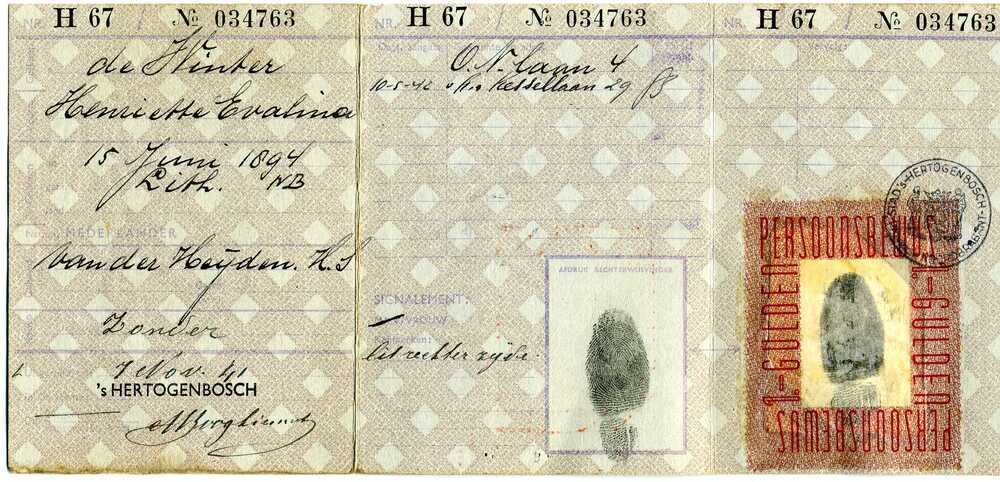 NR. H 67 / № 034763
de Winter
Henriette Evalina
15 Juni 1894
Lith. NB
NEDERLANDER
van der Heyden. H. S
Zonder
7 Nov. 41
's HERTOGENBOSCH
NR. H 67 / № 034763
O. N. laan 4
10-5-42 v/h Kessellaan 29
SIGNALEMENT:
lit rechter zijde.
AFDRUK RECHTERWIJSVINGER
NR. H 67 / № 034763
STAD 's-HERTOGENBOSCH
PERSOONSBEWIJS
1.-GULDEN
1.-GULDEN
PERSOONSBEWIJS